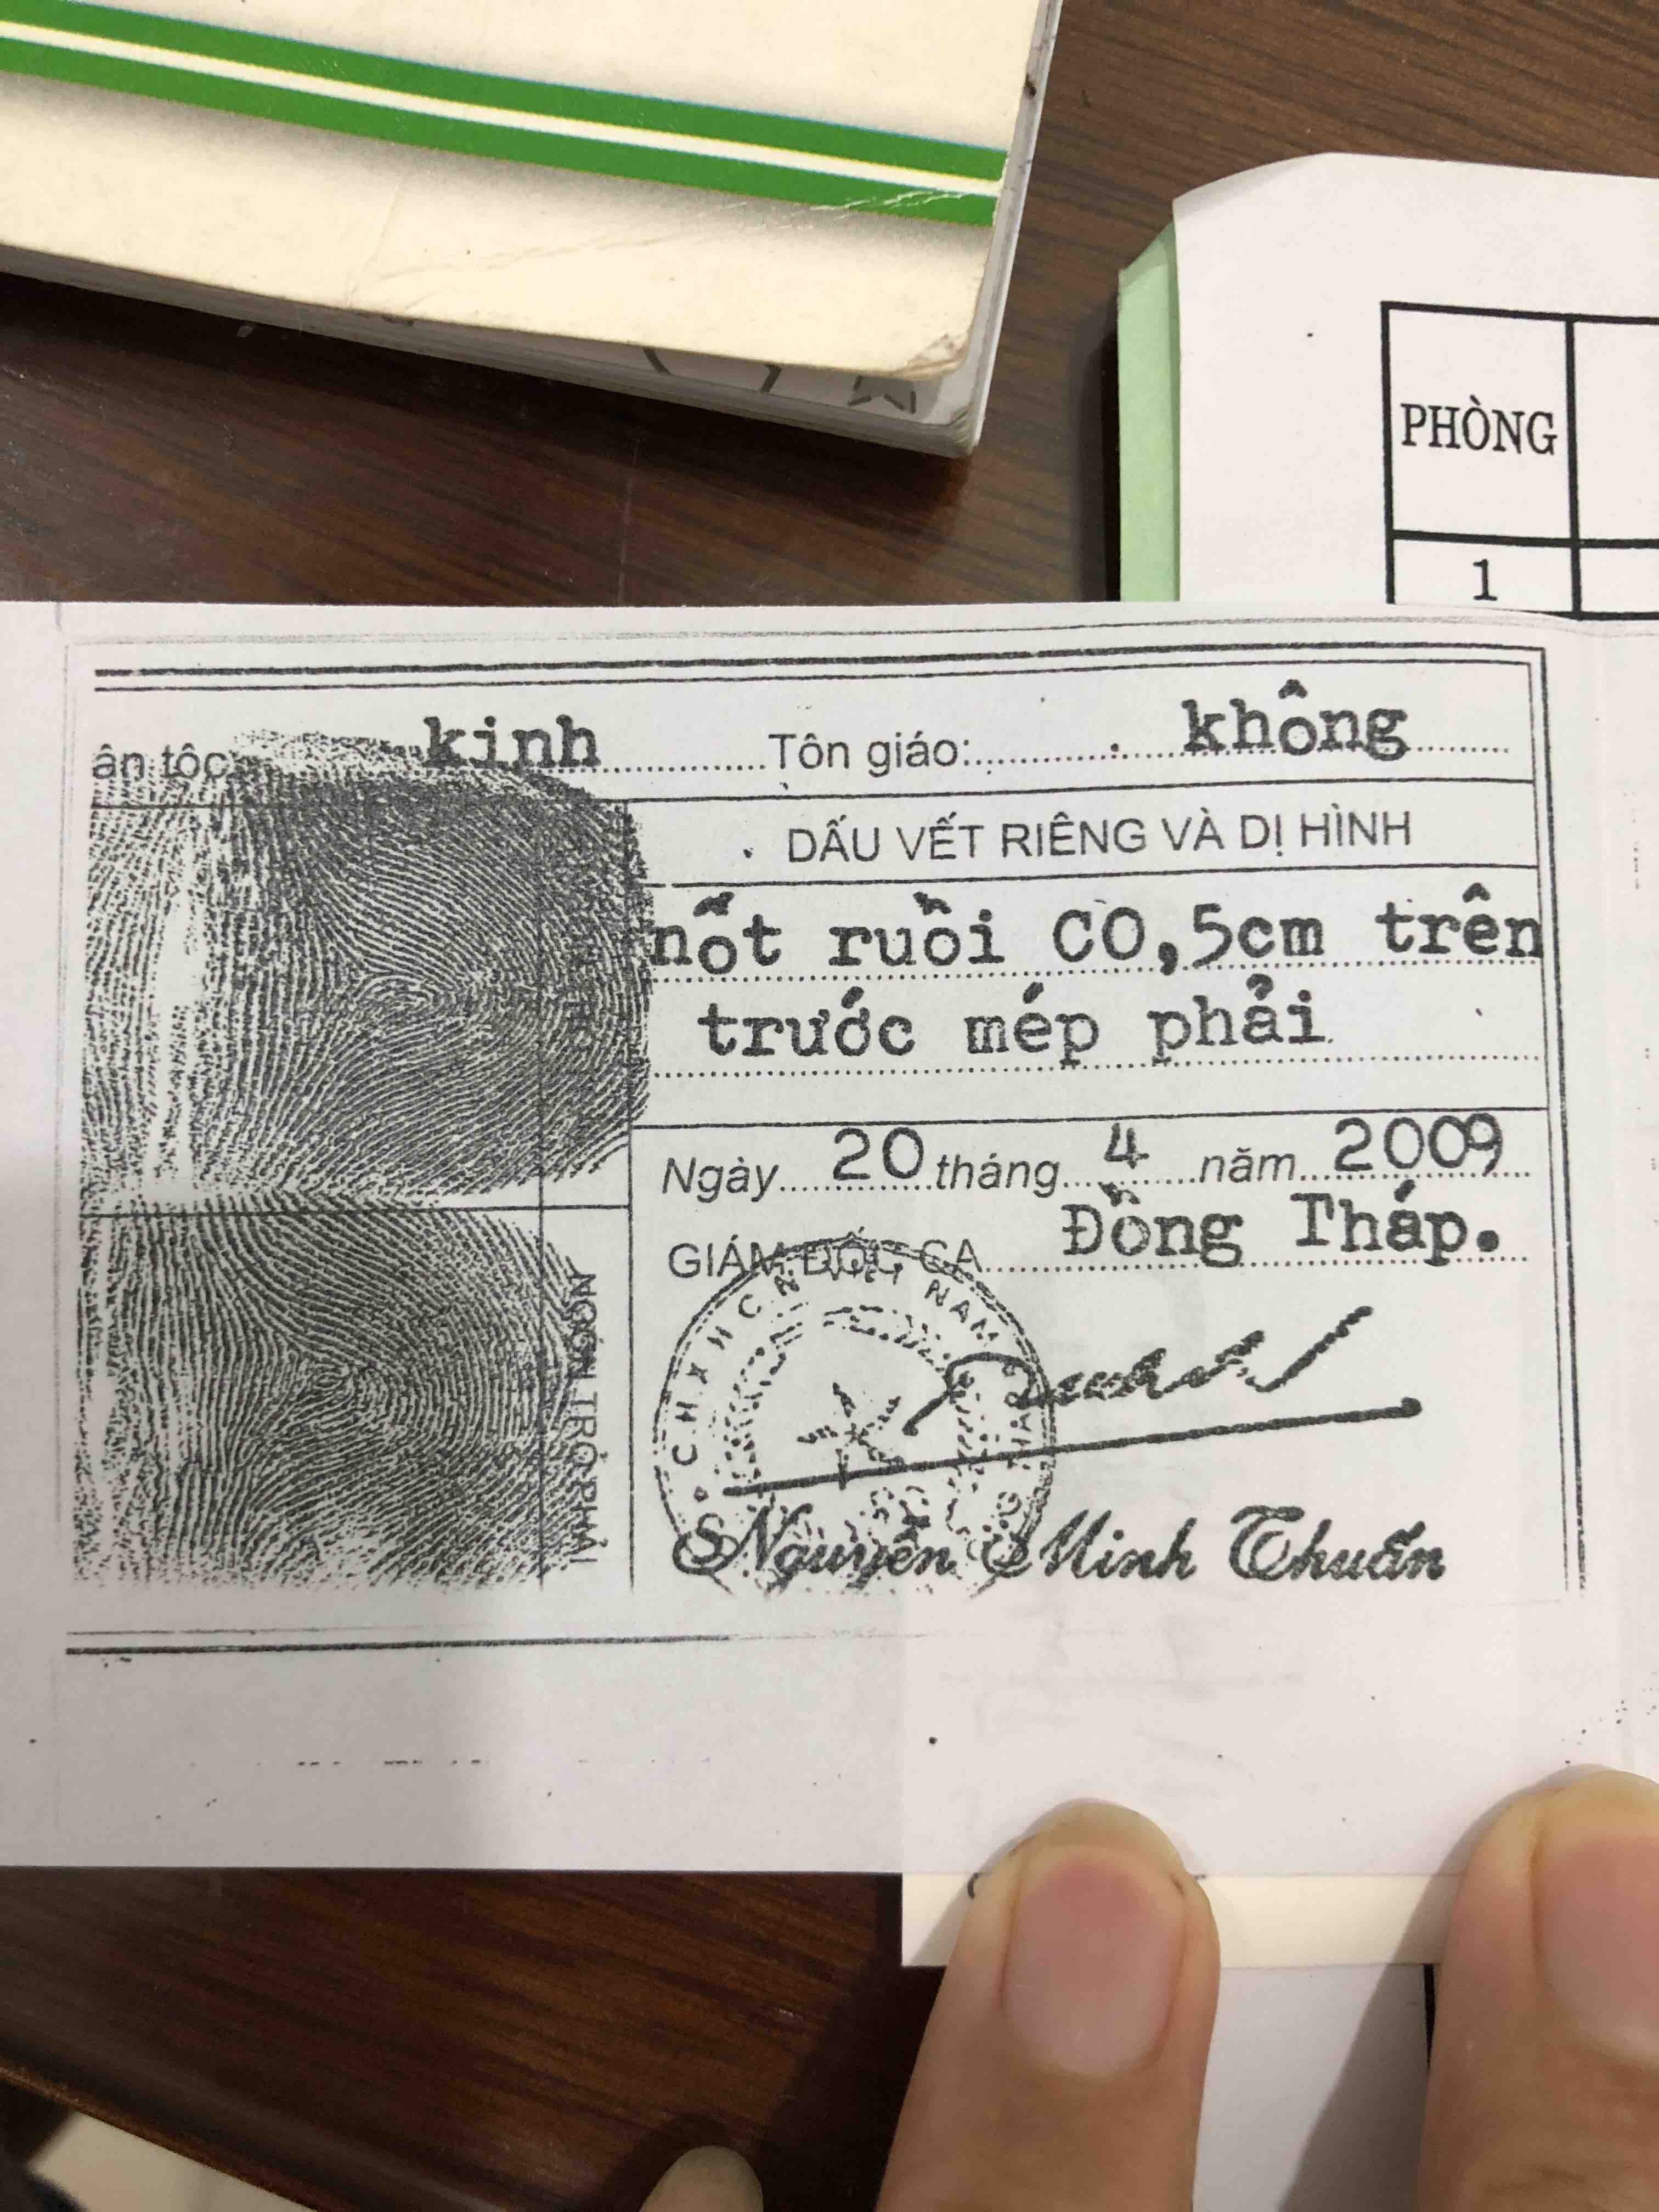 PHÒNG
1
ân tộc: kinh Tôn giáo: không
DẤU VẾT RIÊNG VÀ DỊ HÌNH
nốt ruồi C0,5cm trên
trước mép phải
Ngày 20 tháng 4 năm 2009
GIÁM ĐỐC CA Đồng Tháp.
CHXHCN VIỆT NAM
NGÓN TRỎ PHẢI
Nguyễn Minh Thuấn